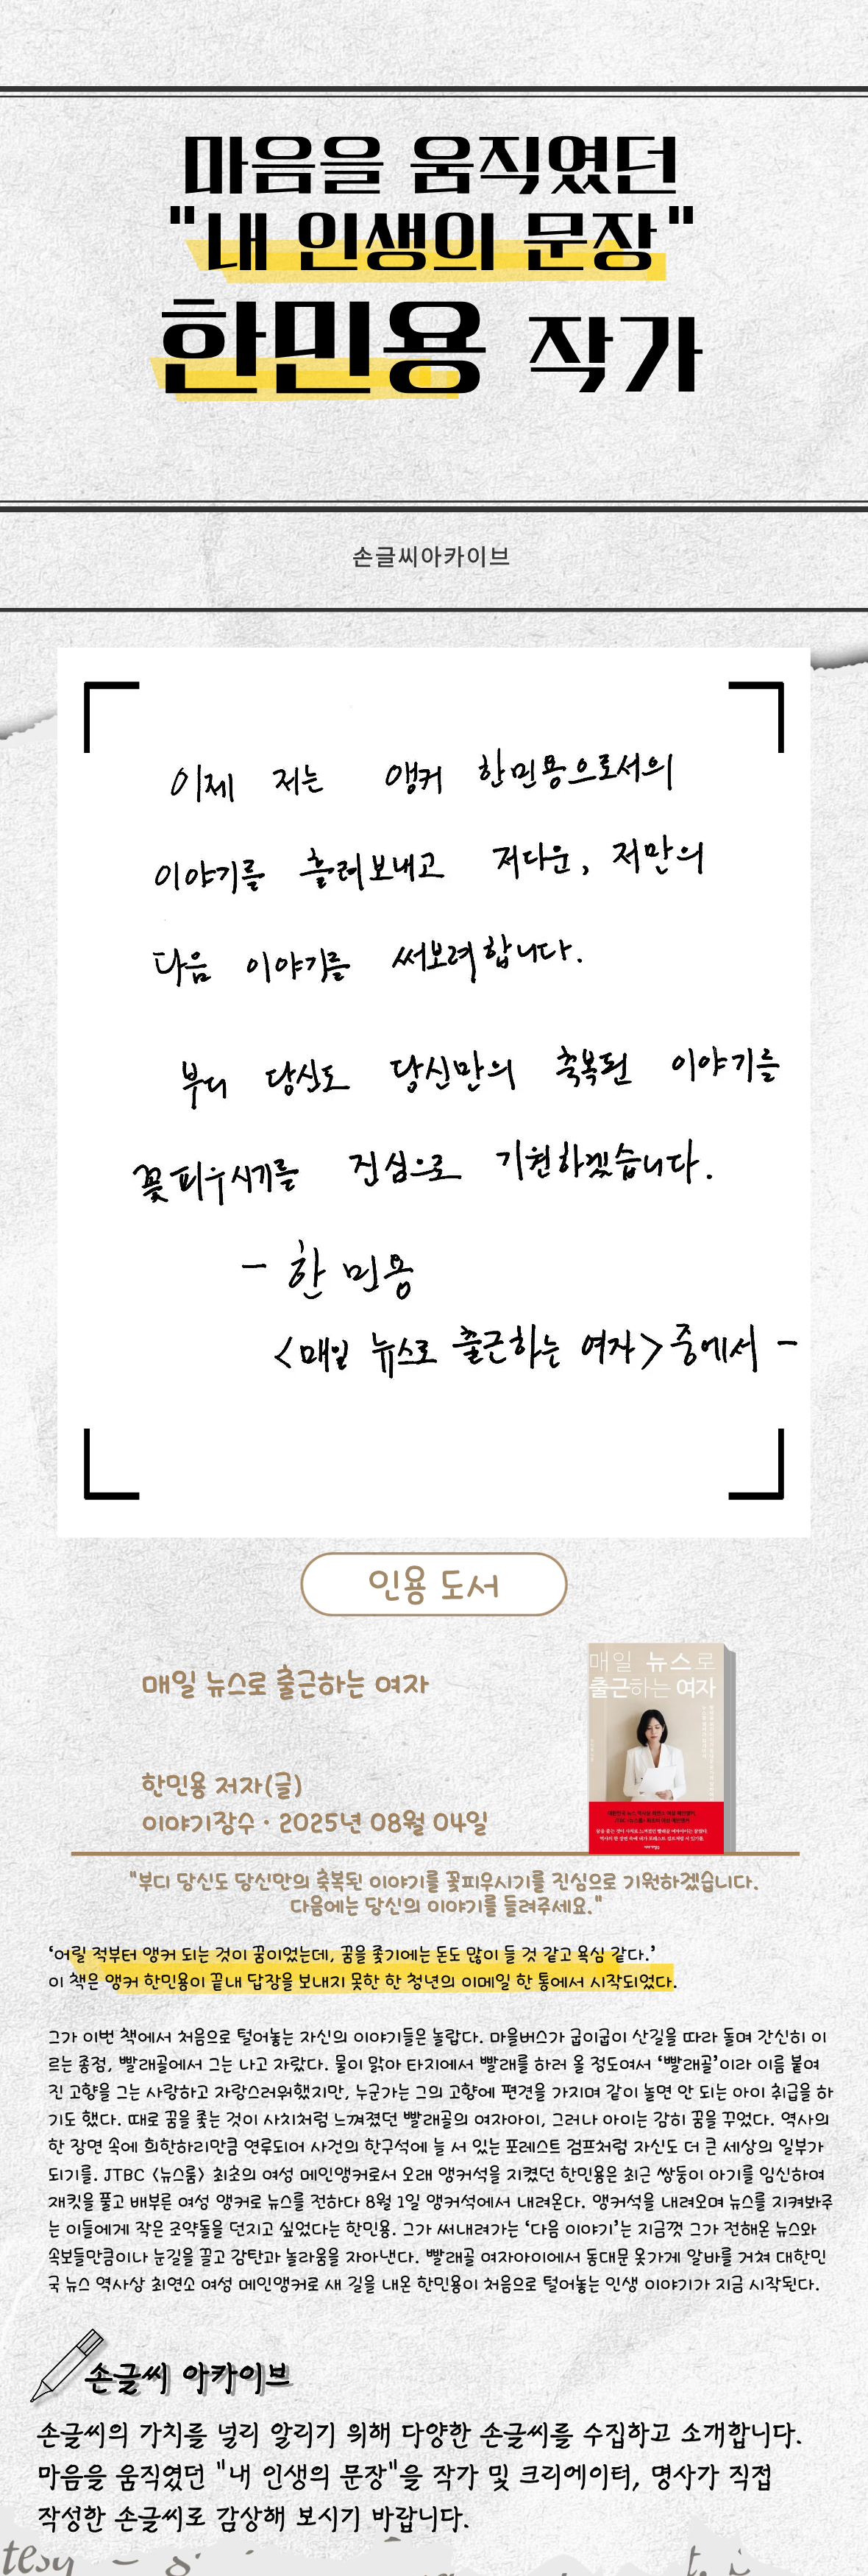 마음을 움직였던
"내 인생의 문장"
한민용 작가
손글씨아카이브
이제 저는 앵커 한민용으로서의
이야기를 흘려보내고 저다운, 저만의
다음 이야기를 써보려합니다.
부디 당신도 당신만의 축복된 이야기를
꽃피우시기를 진심으로 기원하겠습니다.
- 한민용
<매일 뉴스로 출근하는 여자> 중에서 -
인용 도서
매일 뉴스로 출근하는 여자
한민용 저자(글)
이야기장수 · 2025년 08월 04일
매일 뉴스로
출근하는 여자
"부디 당신도 당신만의 축복된 이야기를 꽃피우시기를 진심으로 기원하겠습니다.
다음에는 당신의 이야기를 들려주세요."
‘어릴 적부터 앵커 되는 것이 꿈이었는데, 꿈을 좇기에는 돈도 많이 들 것 같고 욕심 같다.’
이 책은 앵커 한민용이 끝내 답장을 보내지 못한 한 청년의 이메일 한 통에서 시작되었다.
그가 이번 책에서 처음으로 털어놓는 자신의 이야기들은 놀랍다. 마을버스가 굽이굽이 산길을 따라 돌며 간신히 이
르는 종점, 빨래골에서 그는 나고 자랐다. 물이 맑아 타지에서 빨래를 하러 올 정도여서 ‘빨래골’이라 이름 붙여
진 고향을 그는 사랑하고 자랑스러워했지만, 누군가는 그의 고향에 편견을 가지며 같이 놀면 안 되는 아이 취급을 하
기도 했다. 때로 꿈을 좇는 것이 사치처럼 느껴졌던 빨래골의 여자아이, 그러나 아이는 감히 꿈을 꾸었다. 역사의
한 장면 속에 희한하리만큼 연루되어 사건의 한구석에 늘 서 있는 포레스트 검프처럼 자신도 더 큰 세상의 일부가
되기를. JTBC 〈뉴스룸〉 최초의 여성 메인앵커로서 오래 앵커석을 지켰던 한민용은 최근 쌍둥이 아기를 임신하여
재킷을 풀고 배부른 여성 앵커로 뉴스를 전하다 8월 1일 앵커석에서 내려온다. 앵커석을 내려오며 뉴스를 지켜봐주
는 이들에게 작은 조약돌을 던지고 싶었다는 한민용. 그가 써내려가는 ‘다음 이야기’는 지금껏 그가 전해온 뉴스와
속보들만큼이나 눈길을 끌고 감탄과 놀라움을 자아낸다. 빨래골 여자아이에서 동대문 옷가게 알바를 거쳐 대한민
국 뉴스 역사상 최연소 여성 메인앵커로 새 길을 내온 한민용이 처음으로 털어놓는 인생 이야기가 지금 시작된다.
손글씨 아카이브
손글씨의 가치를 널리 알리기 위해 다양한 손글씨를 수집하고 소개합니다.
마음을 움직였던 "내 인생의 문장"을 작가 및 크리에이터, 명사가 직접
작성한 손글씨로 감상해 보시기 바랍니다.